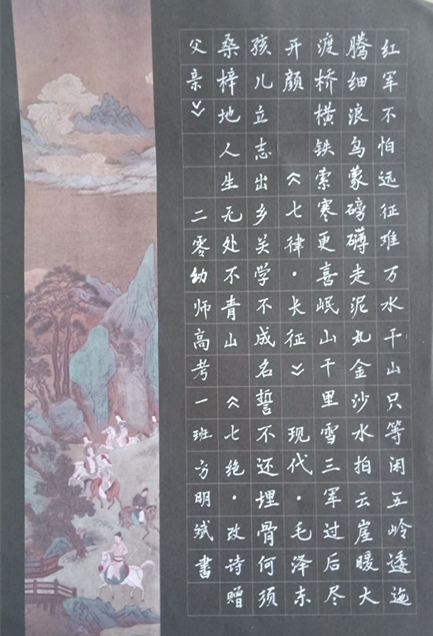 红军不怕远征难万水千山只等闲五岭逶迤
腾细浪乌蒙磅礴走泥丸金沙水拍云崖暖大
渡桥横铁索寒更喜岷山千里雪三军过后尽
开颜 《七律·长征》 现代·毛泽东
孩儿立志出乡关学不成名誓不还埋骨何须
桑梓地人生无处不青山 《七绝·改诗赠
父亲》 二零幼师高考一班方明斌书